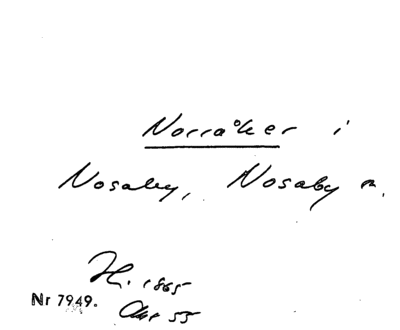 Norråker i
Nosaby, Nosaby sn.
H. 1865
Nr 7949.